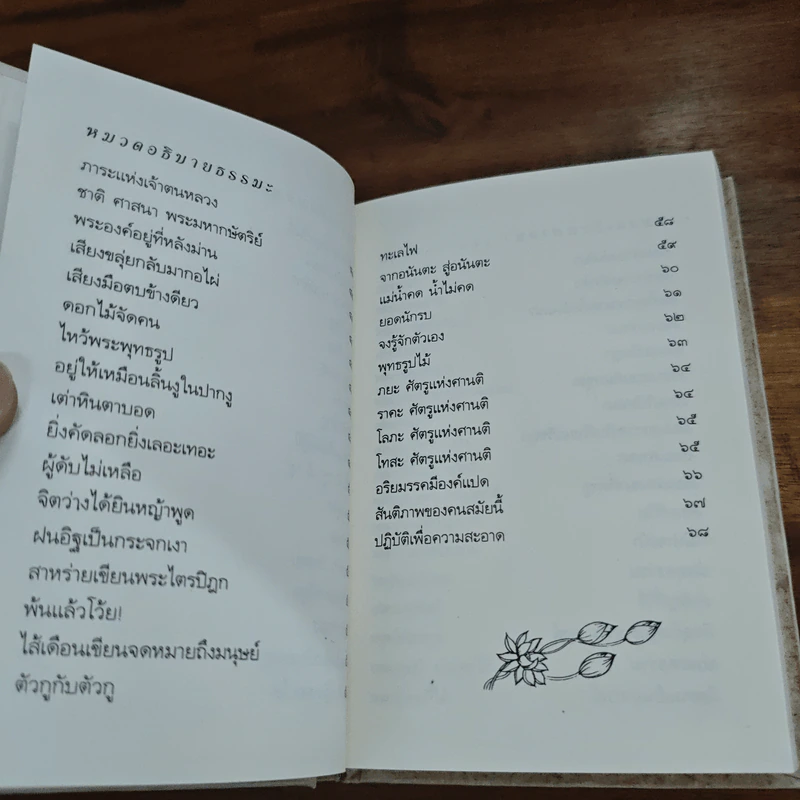 หมวดอธิบายธรรมะ
ภาระแห่งเจ้าตนหลวง
ชาติ ศาสนา พระมหากษัตริย์
พระองค์อยู่ที่หลังม่าน
เสียงขลุ่ยกลับมากอไผ่
เสียงมือตบข้างเดียว
ดอกไม้จัดคน
ไหว้พระพุทธรูป
อยู่ให้เหมือนลิ้นงูในปากงู
เต่าหินตาบอด
ยิ่งคัดลอกยิ่งเลอะเทอะ
ผู้ดับไม่เหลือ
จิตว่างได้ยินหญ้าพูด
ฝนอิฐเป็นกระจกเงา
สาหร่ายเขียนพระไตรปิฎก
พ้นแล้วโว้ย!
ไส้เดือนเขียนจดหมายถึงมนุษย์
ตัวกูกับตัวกู
ทะเลไฟ ๕๘
จากอนันตะ สู่อนันตะ ๕๙
แม่น้ำคด น้ำไม่คด ๖๐
ยอดนักรบ ๖๑
จงรู้จักตัวเอง ๖๒
พุทธรูปไม้ ๖๓
ภยะ ศัตรูแห่งศานติ ๖๔
ราคะ ศัตรูแห่งศานติ ๖๔
โลภะ ศัตรูแห่งศานติ ๖๕
โทสะ ศัตรูแห่งศานติ ๖๕
อริยมรรคมีองค์แปด ๖๖
สันติภาพของคนสมัยนี้ ๖๗
ปฏิบัติเพื่อความสะอาด ๖๘